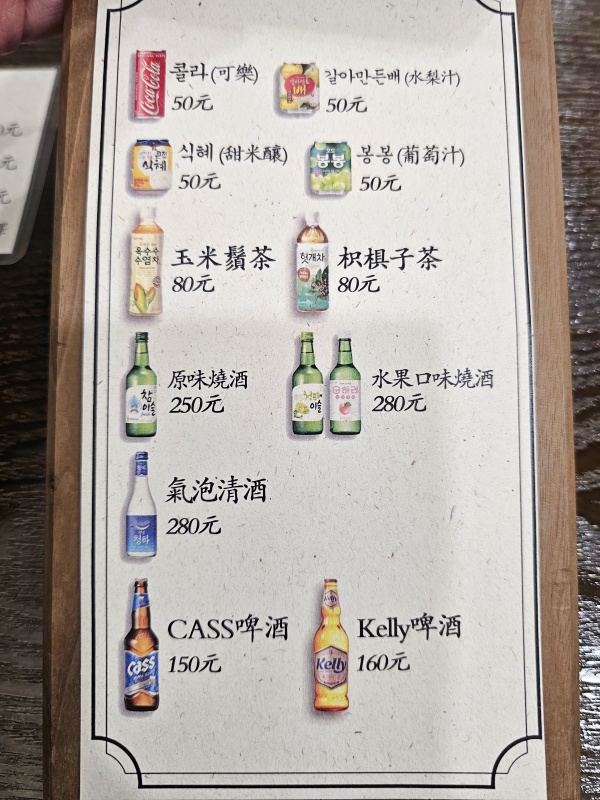 콜라(可樂)
50元
갈아만든배(水梨汁)
50元
식혜(甜米釀)
50元
봉봉(葡萄汁)
50元
玉米鬚茶
80元
枳椇子茶
80元
原味燒酒
250元
水果口味燒酒
280元
氣泡清酒
280元
CASS啤酒
150元
Kelly啤酒
160元
Coca-Cola
배
식혜
봉봉
옥수수
수염차
헛개차
참
이슬
이슬
청하
Cass
Kelly
元
元
元